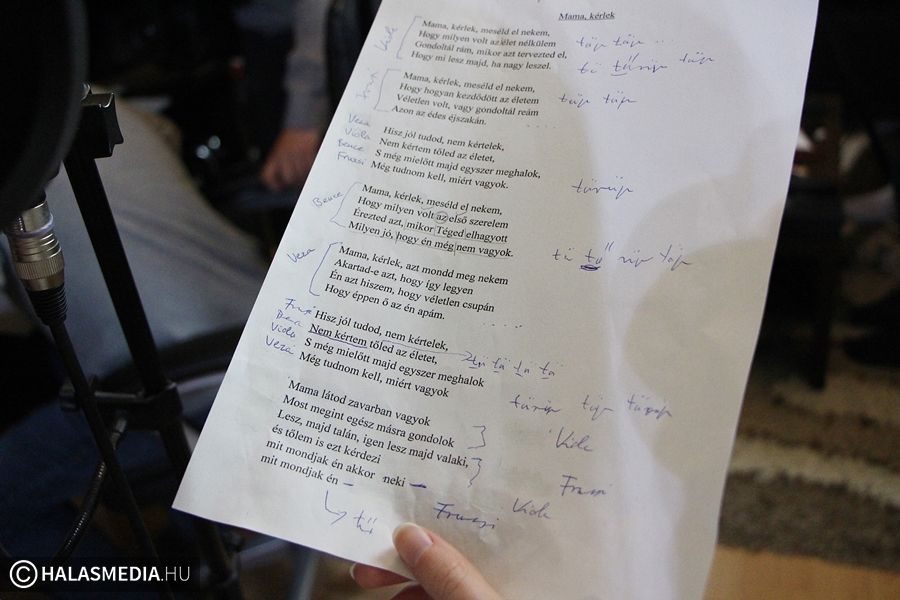 Mama, kérlek
Viki
Mama, kérlek, meséld el nekem,
Hogy milyen volt az élet nélkülem
Gondoltál rám, mikor azt tervezted el,
Hogy mi lesz majd, ha nagy leszel.
táp táp ...
tá tűrűp táp
Mama, kérlek, meséld el nekem,
Hogy hogyan kezdődött az életem
Véletlen volt, vagy gondoltál reám
Azon az édes éjszakán.
táp táp
Vera
Viola
Bence
Frussi
Hisz jól tudod, nem kértelek,
Nem kértem tőled az életet,
S még mielőtt majd egyszer meghalok,
Még tudnom kell, miért vagyok.
Bence
Mama, kérlek, meséld el nekem,
Hogy milyen volt az első szerelem
Érezted azt, mikor Téged elhagyott
Milyen jó, hogy én még nem vagyok.
Vera
Mama, kérlek, azt mondd meg nekem
Akartad-e azt, hogy így legyen
Én azt hiszem, hogy véletlen csupán
Hogy éppen ő az én apám.
Viola
Vera
Hisz jól tudod, nem kértelek,
Nem kértem tőled az életet,
S még mielőtt majd egyszer meghalok
Még tudnom kell, miért vagyok
Mama látod zavarban vagyok
Most megint egész másra gondolok
Lesz, majd talán, igen lesz majd valaki,
és tőlem is ezt kérdezi
mit mondjak én akkor neki
mit mondjak én
©HALASMEDIA.HU